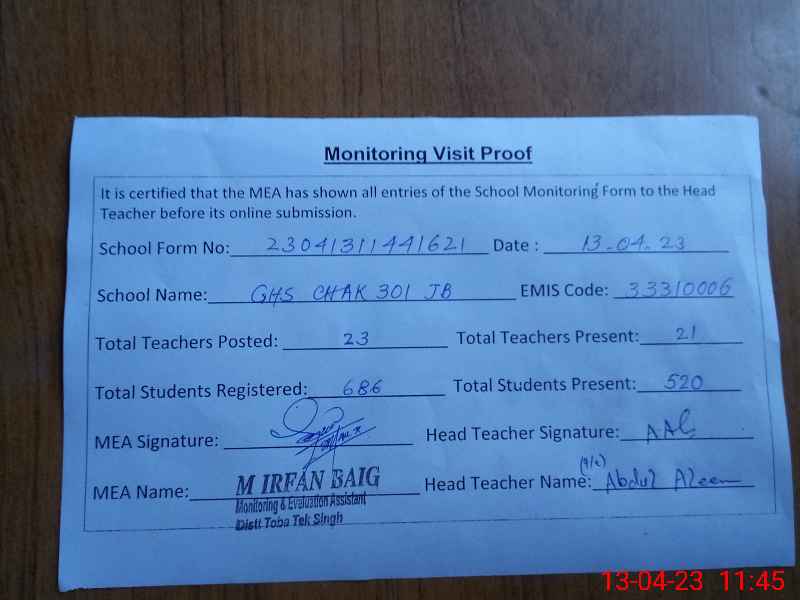 Monitoring Visit Proof
It is certified that the MEA has shown all entries of the School Monitoring Form to the Head
Teacher before its online submission.
School Form No: 23041311441621 Date : 13-04-23
School Name: GHS CHAK 301 JB EMIS Code: 33310006
Total Teachers Posted: 23 Total Teachers Present: 21
Total Students Registered: 686 Total Students Present: 520
MEA Signature: Head Teacher Signature: AAC
(I/c)
MEA Name: M IRFAN BAIG Head Teacher Name: Abdul Aleem
Monitoring & Evaluation Assistant
Distt Toba Tek Singh
13-04-23 11:45